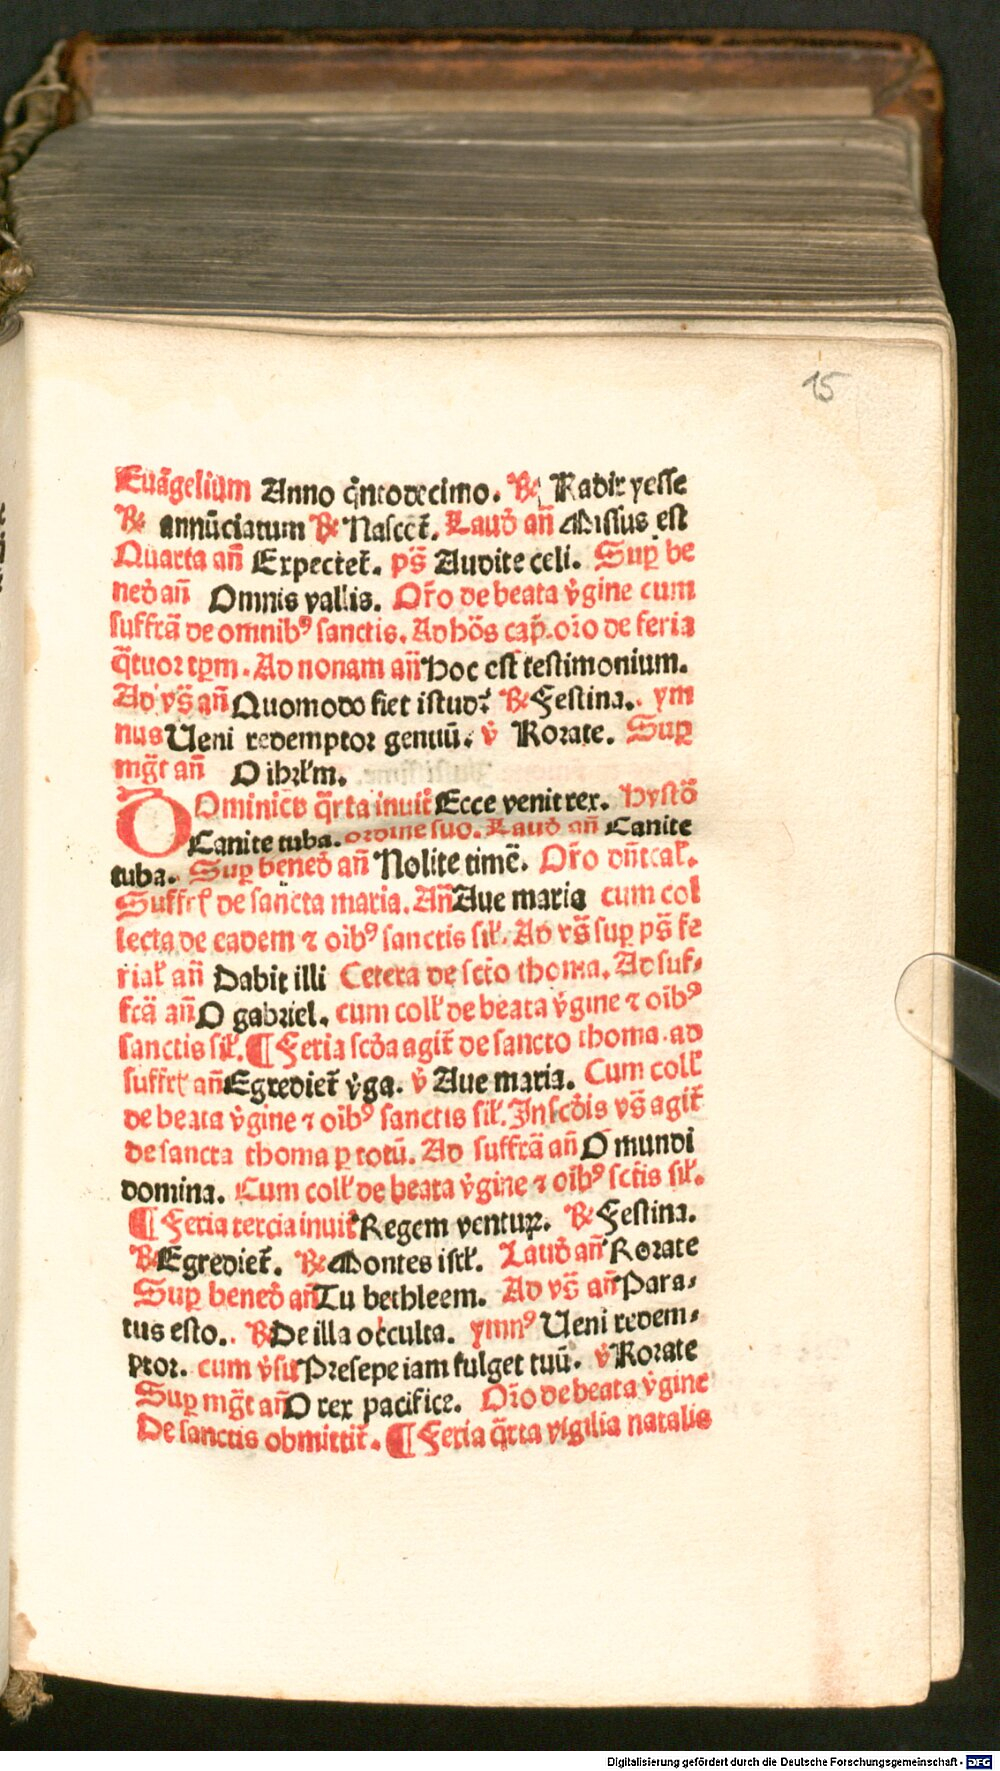 15
Euāgelium Anno q̄ntodecimo. ℟ Radix yesse
℟ annūciatum ℟ Nascet̄. Laud̄ an̄ Missus est
Quarta an̄ Expectet̄. ps̄ Audite celi. Sup be
ned̄ an̄ Omnis vallis. Or̄o de beata v̄gine cum
suffrā de omnibꝰ sanctis. Ad hōs cap̄. oro de feria
q̄tuor tp̄m. Ad nonam an̄ Hoc est testimonium.
Ad vs̄ an̄ Quomodo fiet istud? ℟ Festina. ym
nus Ueni redemptor gentiū. v̄ Rorate. Sup
mḡt an̄ O ihrl̄m.
Dominica q̄rta inuit̄ Ecce venit rex. Hystō
Canite tuba. ordine suo. Laud̄ an̄ Canite
tuba. Sup bened̄ an̄ Nolite timē. Or̄o dn̄ical̄.
Suffrꝭ de sancta maria. An̄ Aue maria cum col
lecta de eadem ⁊ oībꝰ sanctis sil̄. Ad vs̄ sup ps̄ fe
rial̄ an̄ Dabit illi Cetera de sctō thoma. Ad suf⸗
frā an̄ O gabriel. cum coll̄ de beata v̄gine ⁊ oībꝰ
sanctis sil̄. ¶ Feria scd̄a agit̄ de sancto thoma. ad
suffrꝭ an̄ Egrediet̄ v̄ga. v̄ Aue maria. Cum coll̄
de beata v̄gine ⁊ oībꝰ sanctis sil̄. In scd̄is vs̄ agit̄
de sancta thoma p totū. Ad suffrā an̄ O mundi
domina. Cum coll̄ de beata v̄gine ⁊ oībꝰ sctīs sil̄.
¶ Feria tercia inuit̄ Regem venturꝝ. ℟ Festina.
℟ Egrediet̄. ℟ Montes isrl̄. Laud̄ an̄ Rorate
Sup bened̄ an̄ Tu bethleem. Ad vs̄ an̄ Para⸗
tus esto. ℟ De illa occulta. ymnꝰ Ueni redem⸗
ptor. cum v̄su Presepe iam fulget tuū. v̄ Rorate
Sup mḡt an̄ O rex pacifice. Or̄o de beata v̄gine
De sanctis obmittit̄. ¶ Feria q̄rta vigilia natalis
Digitalisierung gefördert durch die Deutsche Forschungsgemeinschaft - DFG